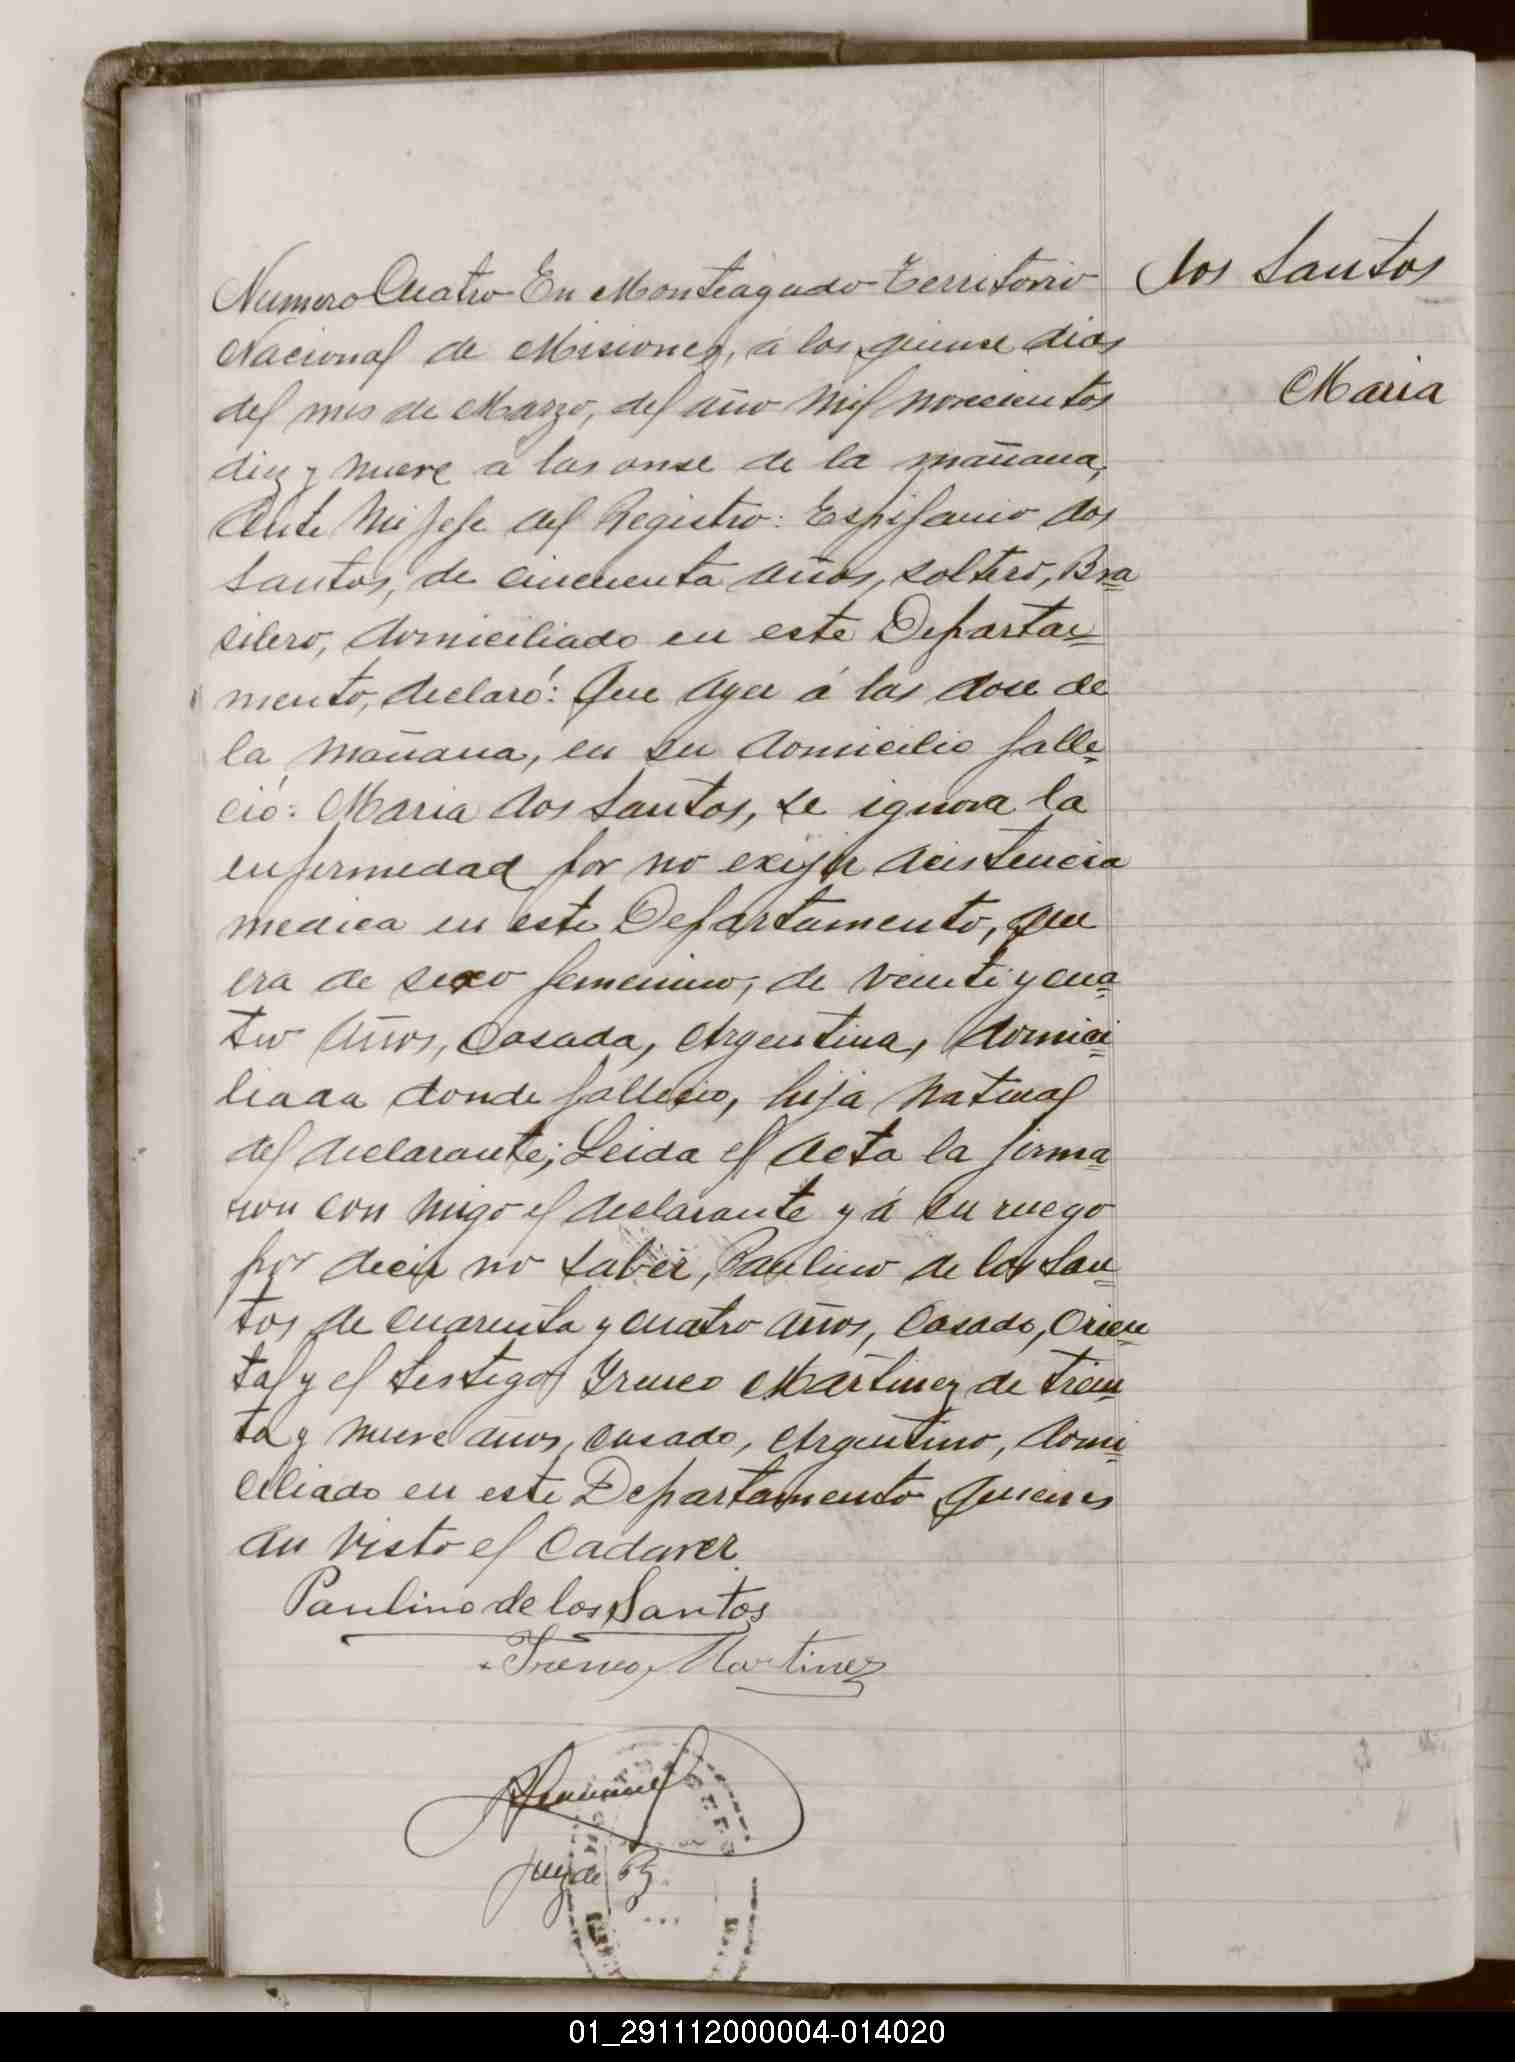 Numero Cuatro En Monteagudo Territorio
Nacional de Misiones, á los quinse dias
del mes de Marzo, del año mil novecientos
diez y nueve a las onse de la mañana,
Ante Mi Jefe del Registro: Espifanio dos
Santos, de cincuenta años, soltero, Bra
silero, domiciliado en este Departa
mento, declaró: Que ayer á las dose de
la mañana, en su domicilio falle
ció: Maria dos Santos, se ignora la
enfermedad por no exijir acistencia
medica en este Departamento, que
era de sexo femenino, de veinte y cua
tro años, Casada, Argentina, domici
liada donde fallecio, hija natural
del declarante; Leida el Acta la firma
ron con migo el declarante y á su ruego
por decir no saber, Paulino de los San
tos de cuarenta y cuatro años, Casado, Orien
tal y el testigo Yreneo Martinez de trein
ta y nueve años, casado, Argentino, domi
ciliado en este Departamento quienes
an visto el Cadaver.
Paulino de los Santos
Ireneo Martinez
Juez de Paz
dos Santos
Maria
01_291112000004-014020